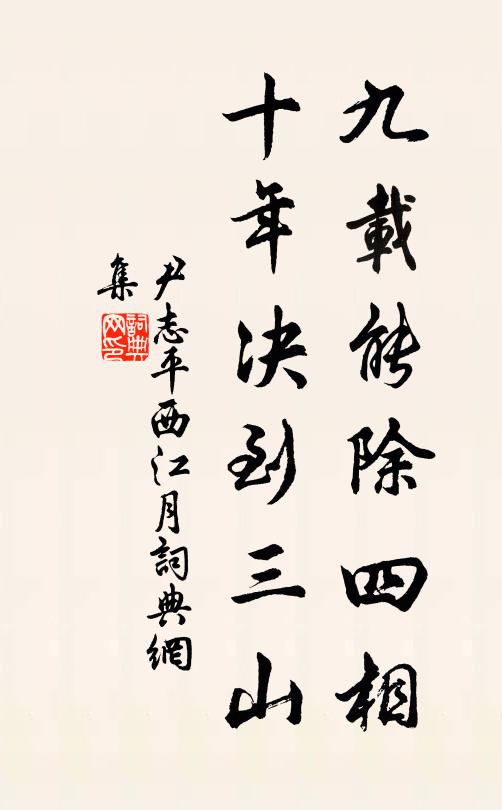 九載能除四相
十年決到三山
尹志平西江月詞典網
集
詞典
网印